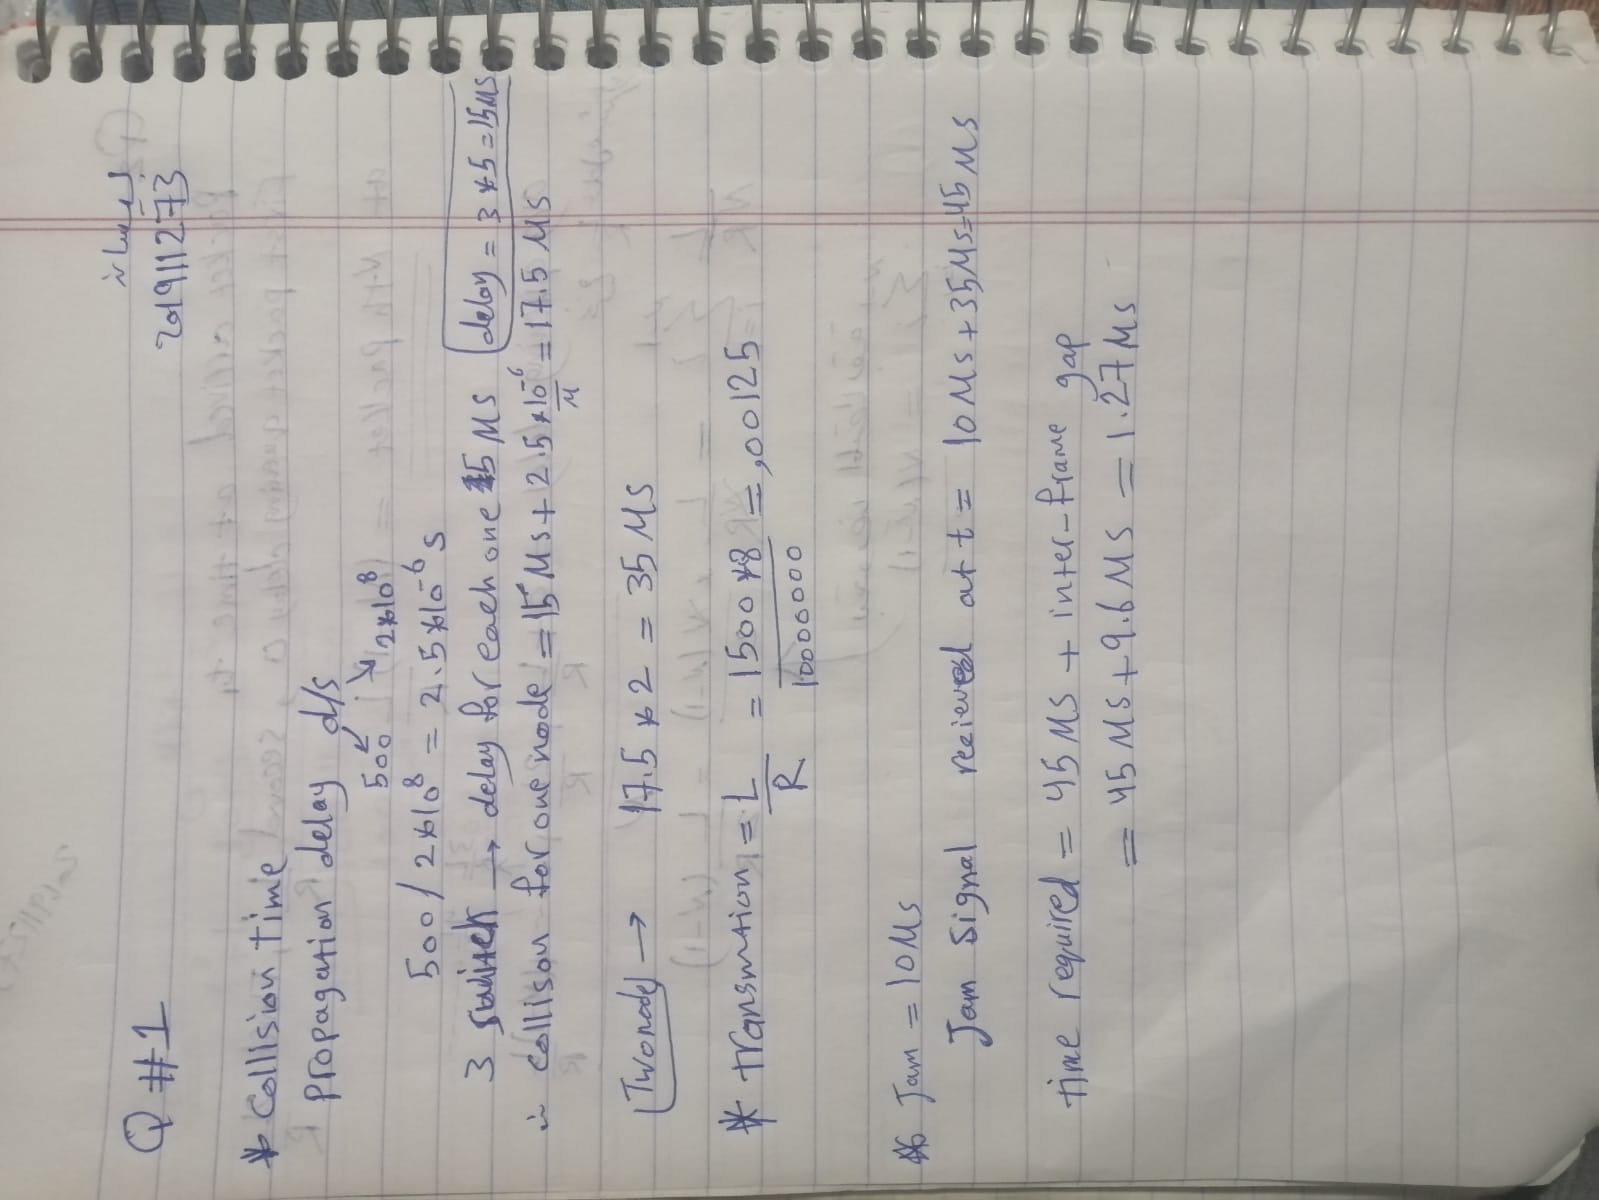 201911273
Q #1
* Collision time
Propagation delay d/s
500 2*10⁸
500 / 2*10⁸ = 2.5*10⁻⁶ s
3 switch → delay for each one 5 Ms delay = 3 *5 = 15Ms
collison for one node = 15 Ms + 2.5*10⁻⁶/M = 17.5 Ms
Two node → 17.5 * 2 = 35 Ms
* transmtion = L/R = 1500 *8/1000000 = ,00125
* Jam = 10Ms
Jam Signal recieved at t = 10Ms + 35Ms=45 Ms
time required = 45Ms + inter-frame gap
= 45 Ms + 9.6 Ms = 1.27 Ms